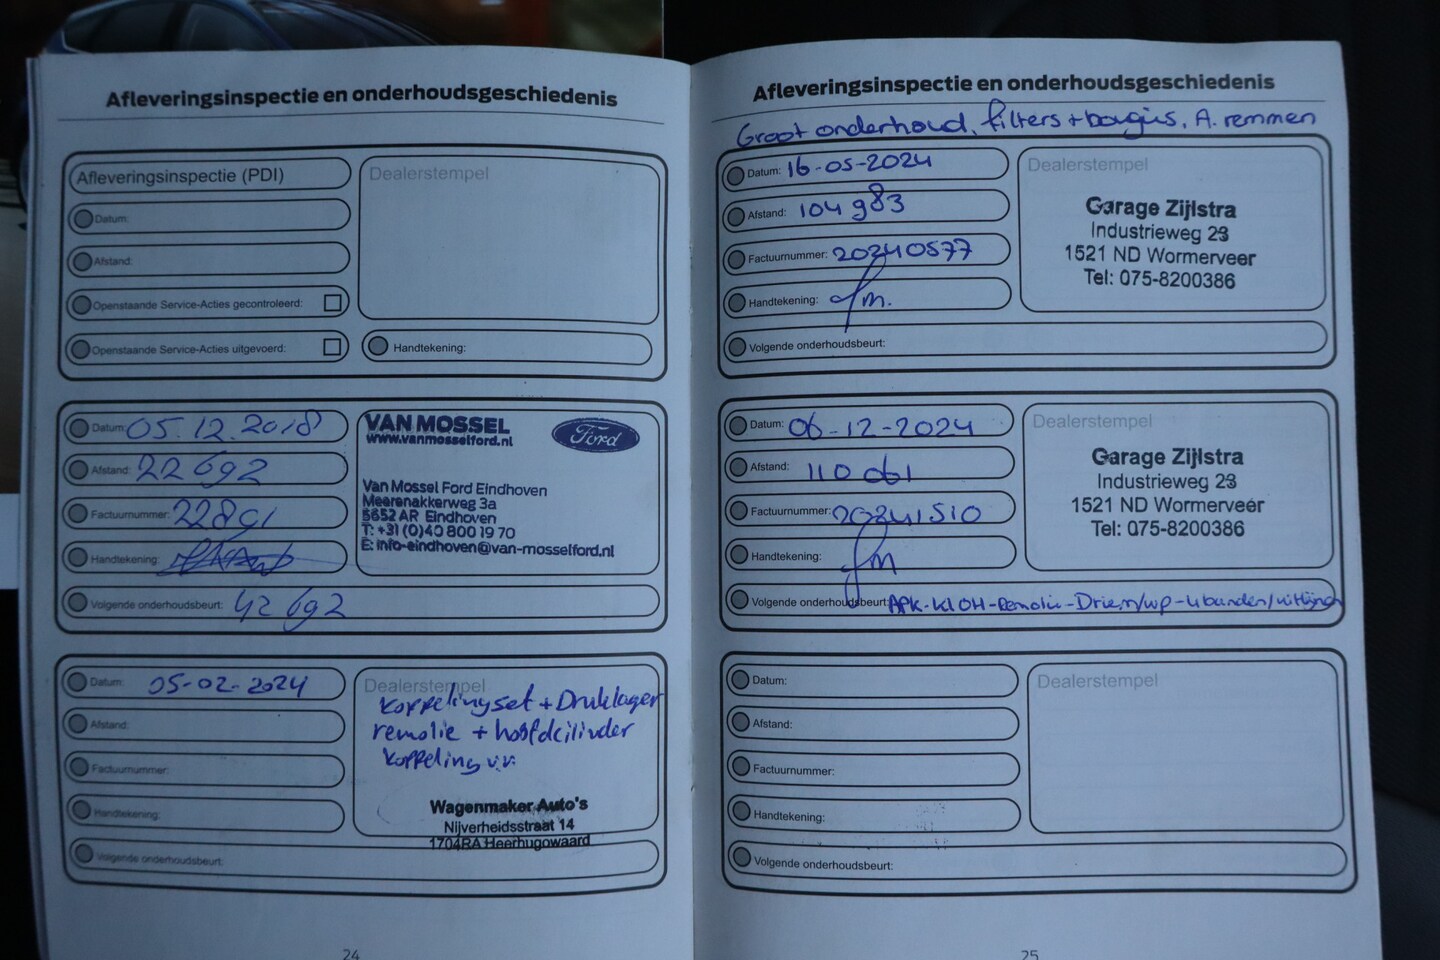 Afleveringsinspectie en onderhoudsgeschiedenis
Afleveringsinspectie (PDI)
Dealerstempel
Datum:
Afstand:
Openstaande Service-Acties gecontroleerd:
Openstaande Service-Acties uitgevoerd:
Handtekening:
Datum: 05.12.2018
Afstand: 22692
Factuurnummer: 22891
Handtekening:
Volgende onderhoudsbeurt: 42692
VAN MOSSEL
www.vanmosselford.nl
Ford
Van Mossel Ford Eindhoven
Meerenakkerweg 3a
5652 AR Eindhoven
T: +31 (0)40 800 19 70
E: info-eindhoven@van-mosselford.nl
Datum: 05-02-2024
Afstand:
Factuurnummer:
Handtekening:
Volgende onderhoudsbeurt:
Dealerstempel
Koppelingset + Druklager
remolie + hoofdcilinder
koppeling v.v.
Wagenmaker Auto's
Nijverheidsstraat 14
1704RA Heerhugowaard
24
Afleveringsinspectie en onderhoudsgeschiedenis
Groot onderhoud, filters + bougies, A. remmen
Datum: 16-05-2024
Afstand: 104983
Factuurnummer: 20240577
Handtekening:
Volgende onderhoudsbeurt:
Dealerstempel
Garage Zijlstra
Industrieweg 23
1521 ND Wormerveer
Tel: 075-8200386
Datum: 06-12-2024
Afstand: 110061
Factuurnummer: 20241510
Handtekening:
Volgende onderhoudsbeurt: APK-KLOH-Remolie-Driem/wp-4banden/uitlijnen
Dealerstempel
Garage Zijlstra
Industrieweg 23
1521 ND Wormerveer
Tel: 075-8200386
Datum:
Afstand:
Factuurnummer:
Handtekening:
Volgende onderhoudsbeurt:
Dealerstempel
25